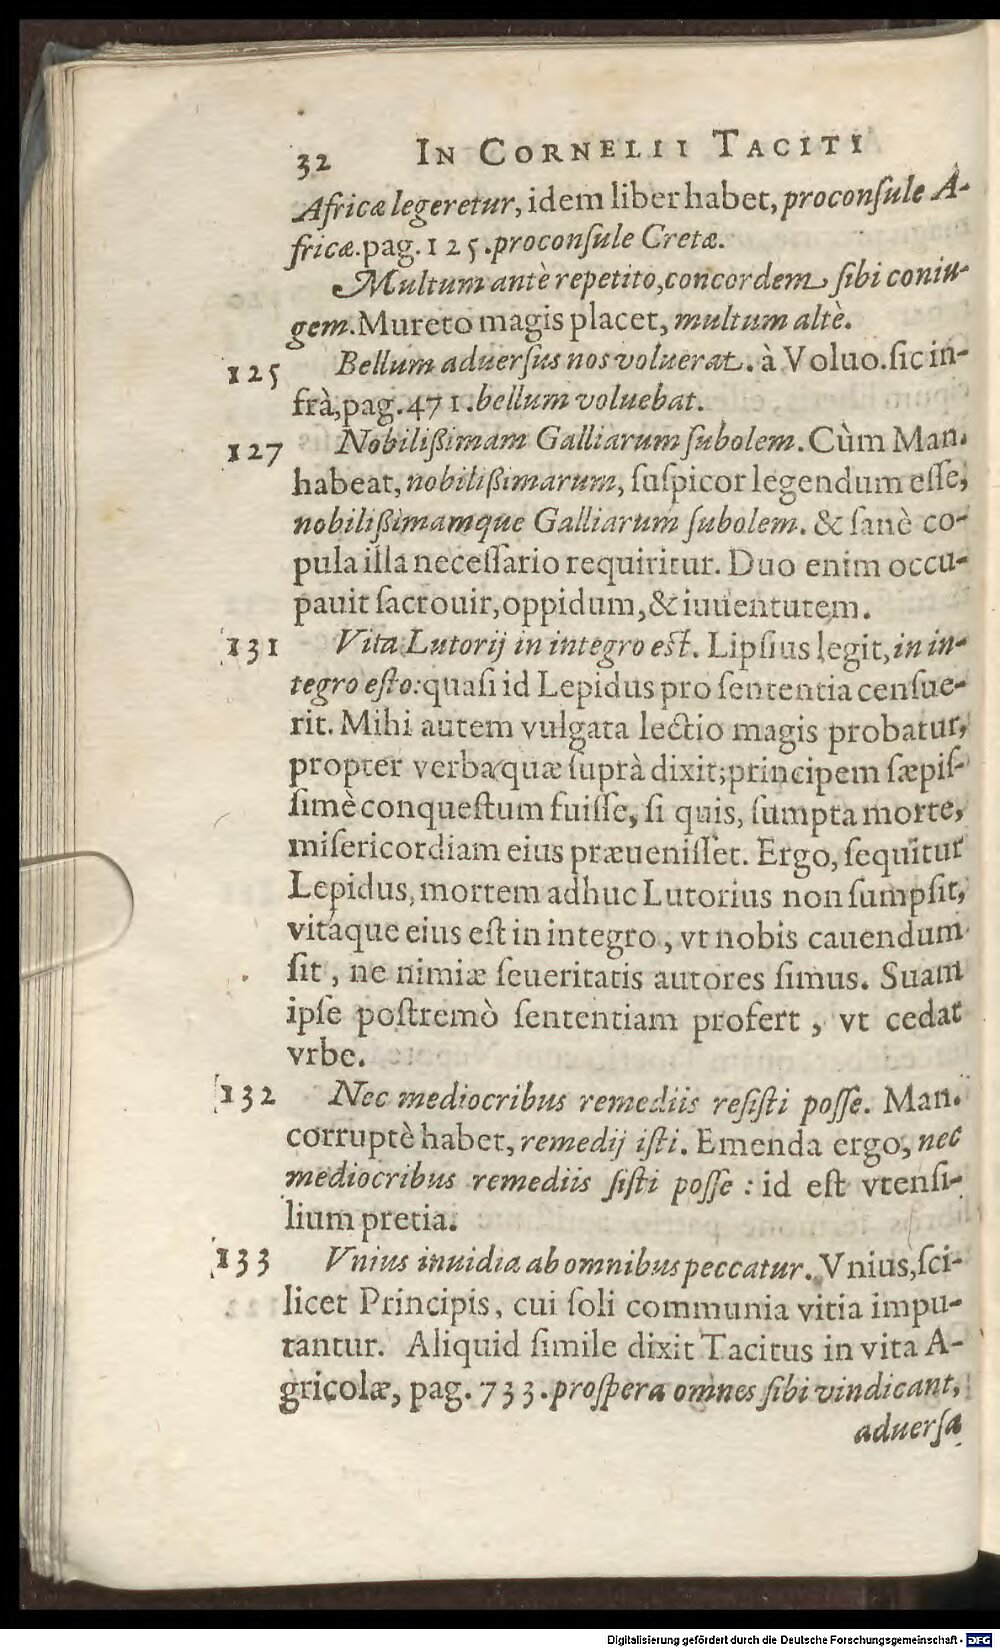 32 IN CORNELII TACITI
Africæ legeretur, idem liber habet, proconſule A-
fricæ. pag. 125. proconſule Cretæ.
Multum antè repetito, concordem ſibi coniu-
gem. Mureto magis placet, multum altè.
125 Bellum aduerſus nos voluerat. à Voluo. ſic in-
frà, pag. 471. bellum voluebat.
127 Nobilißimam Galliarum ſubolem. Cùm Man.
habeat, nobilißimarum, ſuſpicor legendum eſſe,
nobilißimamque Galliarum ſubolem. & ſanè co-
pula illa neceſſario requiritur. Duo enim occu-
pauit ſacrouir, oppidum, & iuuentutem.
131 Vita Lutorij in integro eſt. Lipſius legit, in in-
tegro eſto: quaſi id Lepidus pro ſententia cenſue-
rit. Mihi autem vulgata lectio magis probatur,
propter verba quæ ſuprà dixit; principem ſæpiſ-
ſimè conqueſtum fuiſſe, ſi quis, ſumpta morte,
miſericordiam eius præueniſſet. Ergo, ſequitur
Lepidus, mortem adhuc Lutorius non ſumpſit,
vitáque eius eſt in integro, vt nobis cauendum
ſit, ne nimiæ ſeueritatis autores ſimus. Suam
ipſe poſtremò ſententiam profert, vt cedat
vrbe.
132 Nec mediocribus remediis reſiſti poſſe. Man.
corruptè habet, remedij iſti. Emenda ergo, nec
mediocribus remediis ſiſti poſſe: id eſt vtenſi-
lium pretia.
133 Vnius inuidia ab omnibus peccatur. Vnius, ſci-
licet Principis, cui ſoli communia vitia impu-
tantur. Aliquid ſimile dixit Tacitus in vita A-
gricolæ, pag. 733. proſpera omnes ſibi vindicant,
aduerſa
Digitalisierung gefördert durch die Deutsche Forschungsgemeinschaft - DFG